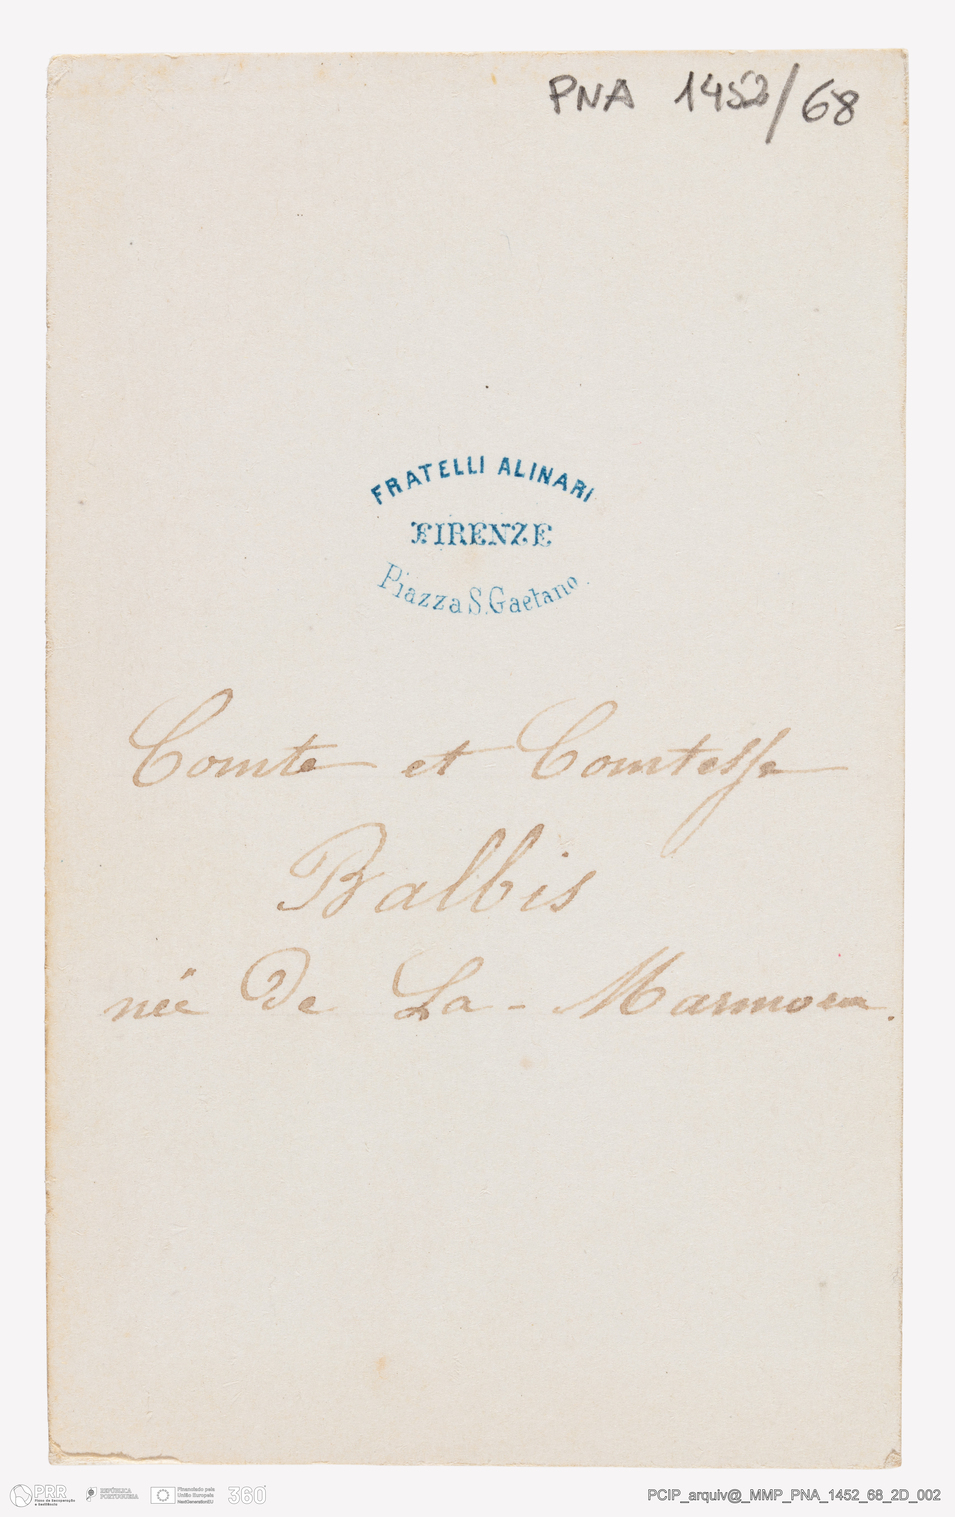 PNA 1452/68
FRATELLI ALINARI
FIRENZE
Piazza S. Gaetano.
Comte et Comtesse
Balbis
née De La-Marmora.
PRR
Plano de Recuperação
e Resiliência
REPÚBLICA
PORTUGUESA
Financiado pela
União Europeia
NextGenerationEU
360
PCIP_arquiv@_MMP_PNA_1452_68_2D_002